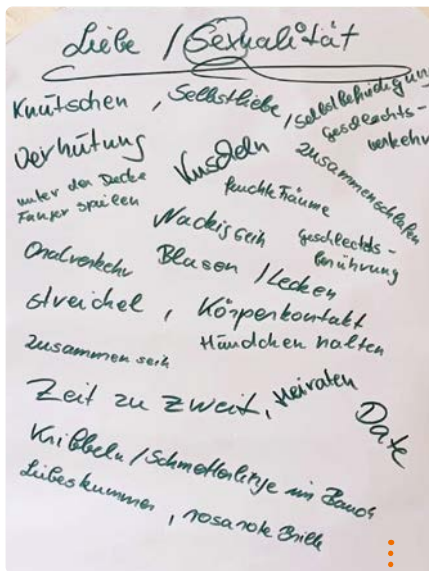 Liebe / Sexualität
Knutschen, Selbstliebe, Selbstbefriedigung
Geschlechts-
verkehr
Verhütung
Kuscheln
zusammenschlafen
unter der Decke
feuchte Träume
Nackig sein
geschlechts-
berührung
Oralverkehr
Blasen / Lecken
streichel, Körperkontakt
Händchen halten
zusammen sein
Zeit zu zweit, Heiraten
Date
Kribbeln / Schmetterlinge im Bauch
Liebeskummer, rosarote Brille